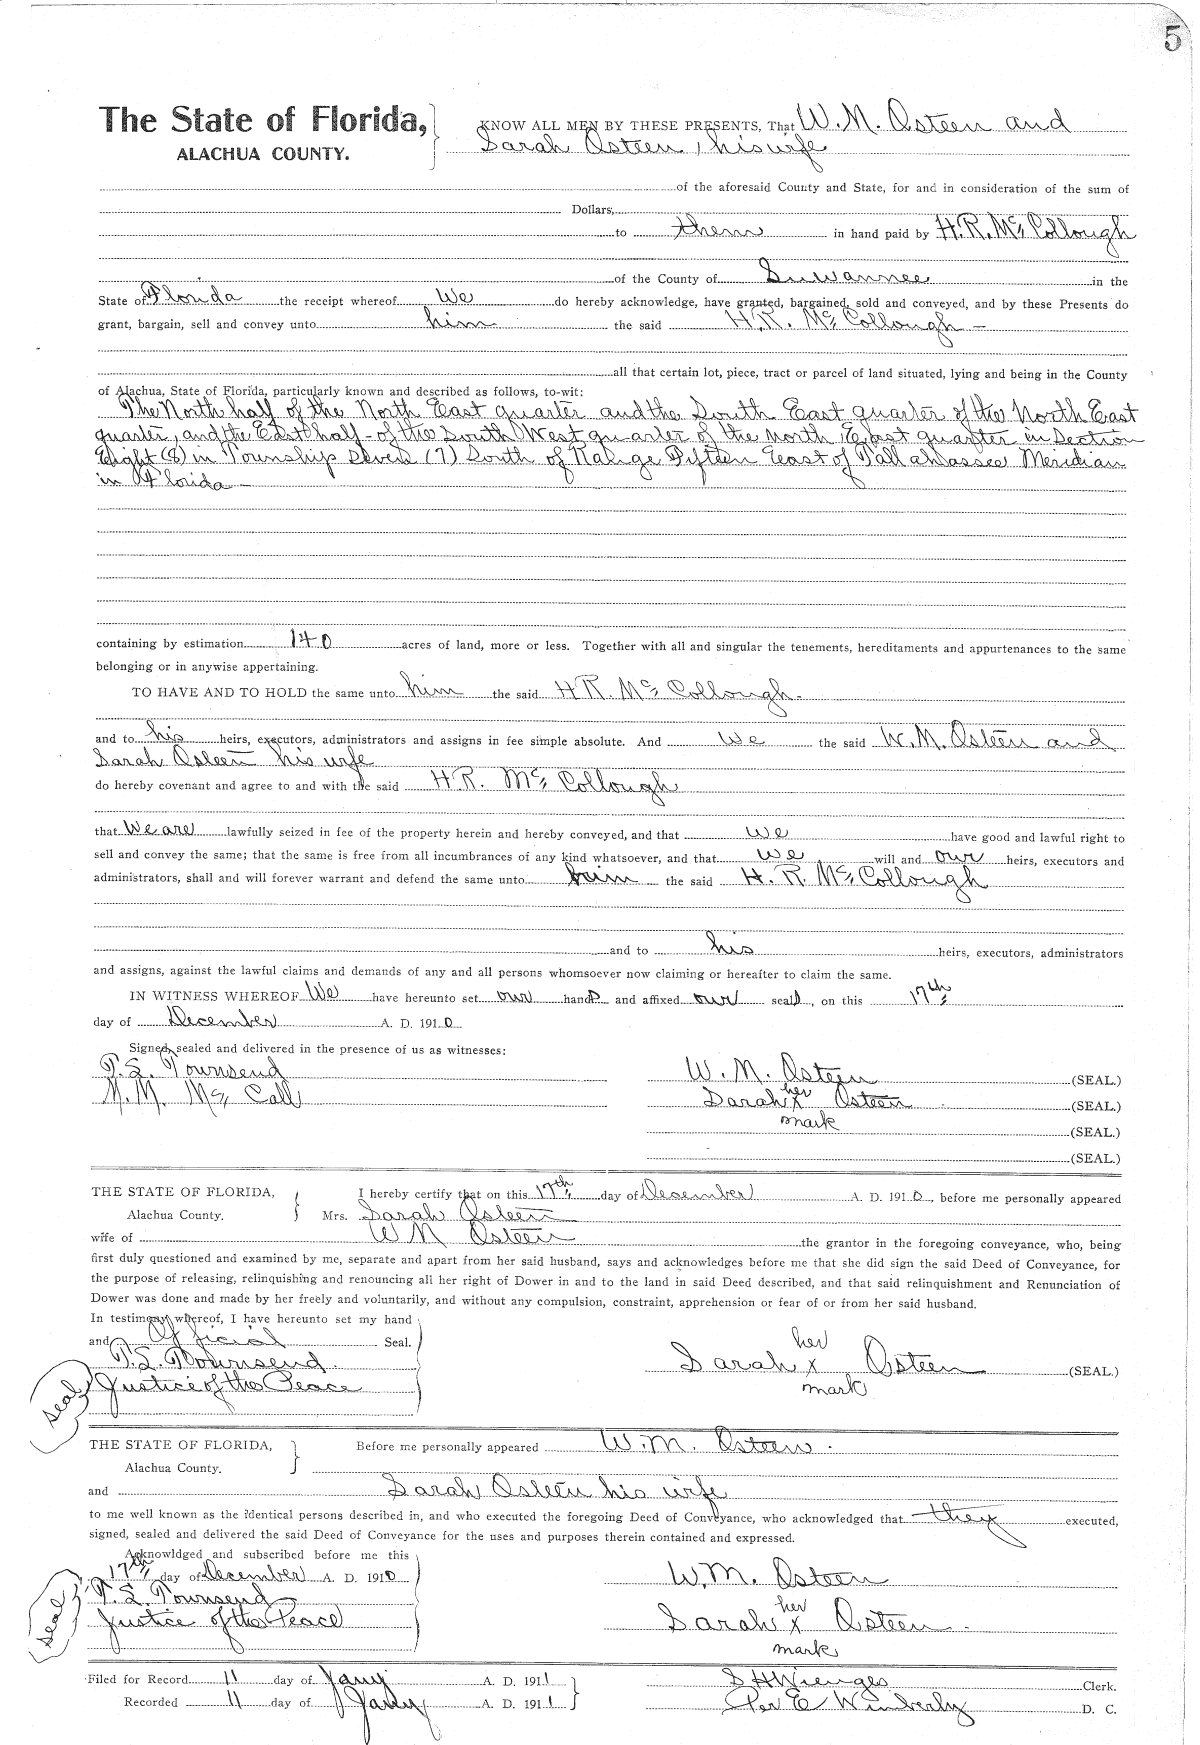 5
The State of Florida, KNOW ALL MEN BY THESE PRESENTS, That W. M. Osteen and
ALACHUA COUNTY. Sarah Osteen, his wife
of the aforesaid County and State, for and in consideration of the sum of
Dollars,
to them in hand paid by H. R. McCollough
of the County of Suwannee in the
State of Florida the receipt whereof We do hereby acknowledge, have granted, bargained, sold and conveyed, and by these Presents do
grant, bargain, sell and convey unto him the said H. R. McCollough -
all that certain lot, piece, tract or parcel of land situated, lying and being in the County
of Alachua, State of Florida, particularly known and described as follows, to-wit:
The North half of the North East quarter and the South East quarter of the North East
quarter, and the East half of the South West quarter of the North East quarter in Section
Eight (8) in Township Seven (7) South of Range Fifteen East of Tallahassee Meridian
in Florida -
containing by estimation 140 acres of land, more or less. Together with all and singular the tenements, hereditaments and appurtenances to the same
belonging or in anywise appertaining.
TO HAVE AND TO HOLD the same unto him the said H R. McCollough -
and to his heirs, executors, administrators and assigns in fee simple absolute. And we the said W. M. Osteen and
Sarah Osteen his wife
do hereby covenant and agree to and with the said H. R. McCollough
that We are lawfully seized in fee of the property herein and hereby conveyed, and that we have good and lawful right to
sell and convey the same; that the same is free from all incumbrances of any kind whatsoever, and that we will and our heirs, executors and
administrators, shall and will forever warrant and defend the same unto him the said H. R. McCollough
and to his heirs, executors, administrators
and assigns, against the lawful claims and demands of any and all persons whomsoever now claiming or hereafter to claim the same.
IN WITNESS WHEREOF We have hereunto set our hands and affixed our seals, on this 17th
day of December A. D. 1910
Signed, sealed and delivered in the presence of us as witnesses:
T. S. Townsend W. M. Osteen (SEAL.)
N. M. McCall Sarah her x mark Osteen (SEAL.)
(SEAL.)
(SEAL.)
THE STATE OF FLORIDA, I hereby certify that on this 17th day of December A. D. 1910, before me personally appeared
Alachua County. Mrs. Sarah Osteen
wife of W M Osteen the grantor in the foregoing conveyance, who, being
first duly questioned and examined by me, separate and apart from her said husband, says and acknowledges before me that she did sign the said Deed of Conveyance, for
the purpose of releasing, relinquishing and renouncing all her right of Dower in and to the land in said Deed described, and that said relinquishment and Renunciation of
Dower was done and made by her freely and voluntarily, and without any compulsion, constraint, apprehension or fear of or from her said husband.
In testimony whereof, I have hereunto set my hand
and Official Seal.
T. S. Townsend Sarah her x mark Osteen (SEAL)
seal Justice of the Peace
THE STATE OF FLORIDA, Before me personally appeared W. M. Osteen
Alachua County.
and Sarah Osteen his wife
to me well known as the identical persons described in, and who executed the foregoing Deed of Conveyance, who acknowledged that they executed,
signed, sealed and delivered the said Deed of Conveyance for the uses and purposes therein contained and expressed.
Acknowldged and subscribed before me this
17th day of December A. D. 1910 W. M. Osteen
T. S. Townsend
seal Justice of the Peace Sarah her x mark Osteen
Filed for Record 11 day of Jany A. D. 1911 S H Wienges Clerk.
Recorded 11 day of Jany A. D. 1911 Per E Wimberly D. C.